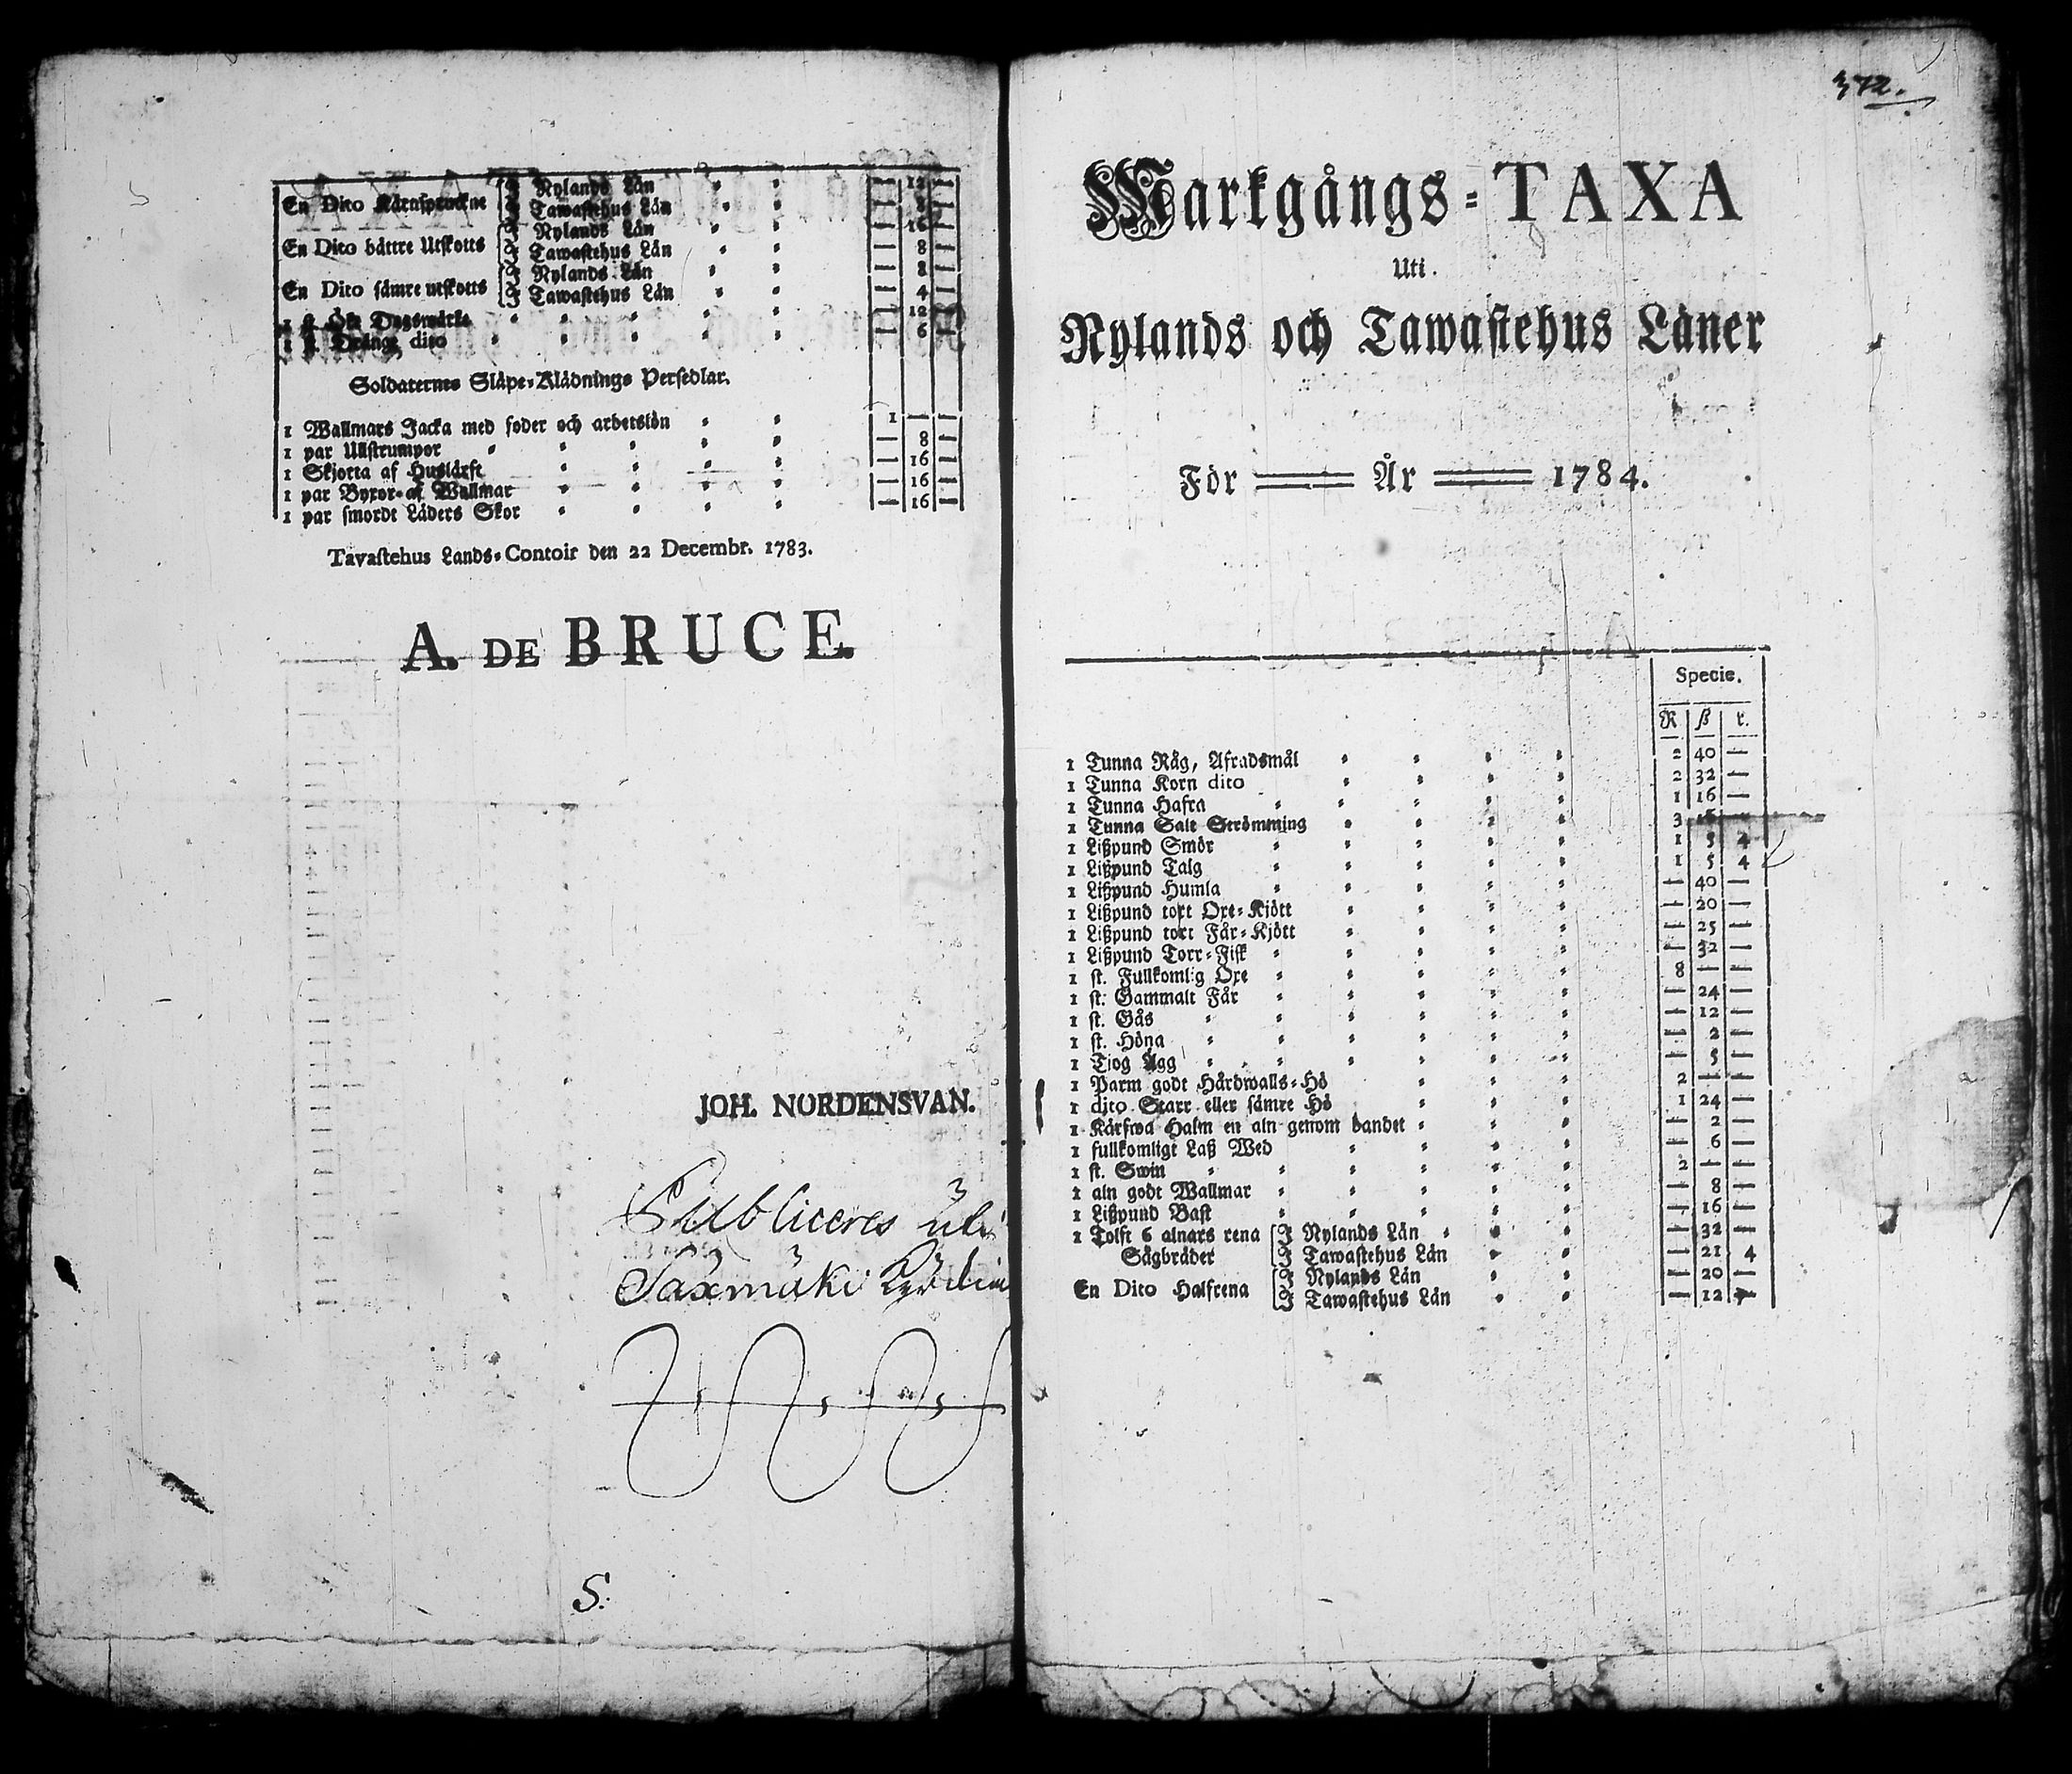 En Dito Kärnspruckne I Nylands Län — 12 —
I Tawastehus Län — 8 —
En Dito bättre Utskotts I Nylands Län — 16 —
I Tawastehus Län — 8 —
En Dito sämre utskotts I Nylands Län — 8 —
I Tawastehus Län — 4 —
1 st. Ök Dagswärke — 12 —
1 st. Drängs dito — 6 —
Soldaternes Släpe-Klädnings Persedlar.
1 Wallmars Jacka med foder och arbetslön 1 — —
1 par Ullstrumpor — 8 —
1 Skjorta af Huslärft — 16 —
1 par Byxor af Wallmar — 16 —
1 par smorde Läders Skor — 16 —
Tavastehus Lands-Contoir den 22 Decembr. 1783.
A. DE BRUCE.
JOH. NORDENSVAN.
Publiceres uti
Saxmäki
S.
372.
Markgångs-TAXA
Uti
Nylands och Tawastehus Läner
För År 1784.
Specie.
R ß r.
1 Tunna Råg, Afradsmål 2 40 —
1 Tunna Korn dito 2 32 —
1 Tunna Hafra 1 16 —
1 Tunna Salt Strömming 3 16 —
1 Lißpund Smör 1 5 4
1 Lißpund Talg 1 5 4
1 Lißpund Humla — 40 —
1 Lißpund tort Oxe-Kjött — 20 —
1 Lißpund tort Får-Kjött — 25 —
1 Lißpund Torr-Fisk — 32 —
1 st. Fullkomlig Oxe 8 — —
1 st. Gammalt Får — 24 —
1 st. Gås — 12 —
1 st. Höna — 2 —
1 Tjog Ägg — 5 —
1 Parm godt Hårdwalls-Hö 2 — —
1 dito Starr eller sämre Hö 1 24 —
1 Kärfwa Halm en aln genom bandet — 2 —
1 fullkomligt Laß Wed — 6 —
1 st. Swin 2 — —
1 aln godt Wallmar — 8 —
1 Lißpund Bast — 16 —
1 Tolft 6 alnars rena I Nylands Län — 32 —
Sågbräder I Tawastehus Län — 21 4
En Dito Halfrena I Nylands Län — 20 —
I Tawastehus Län — 12 —